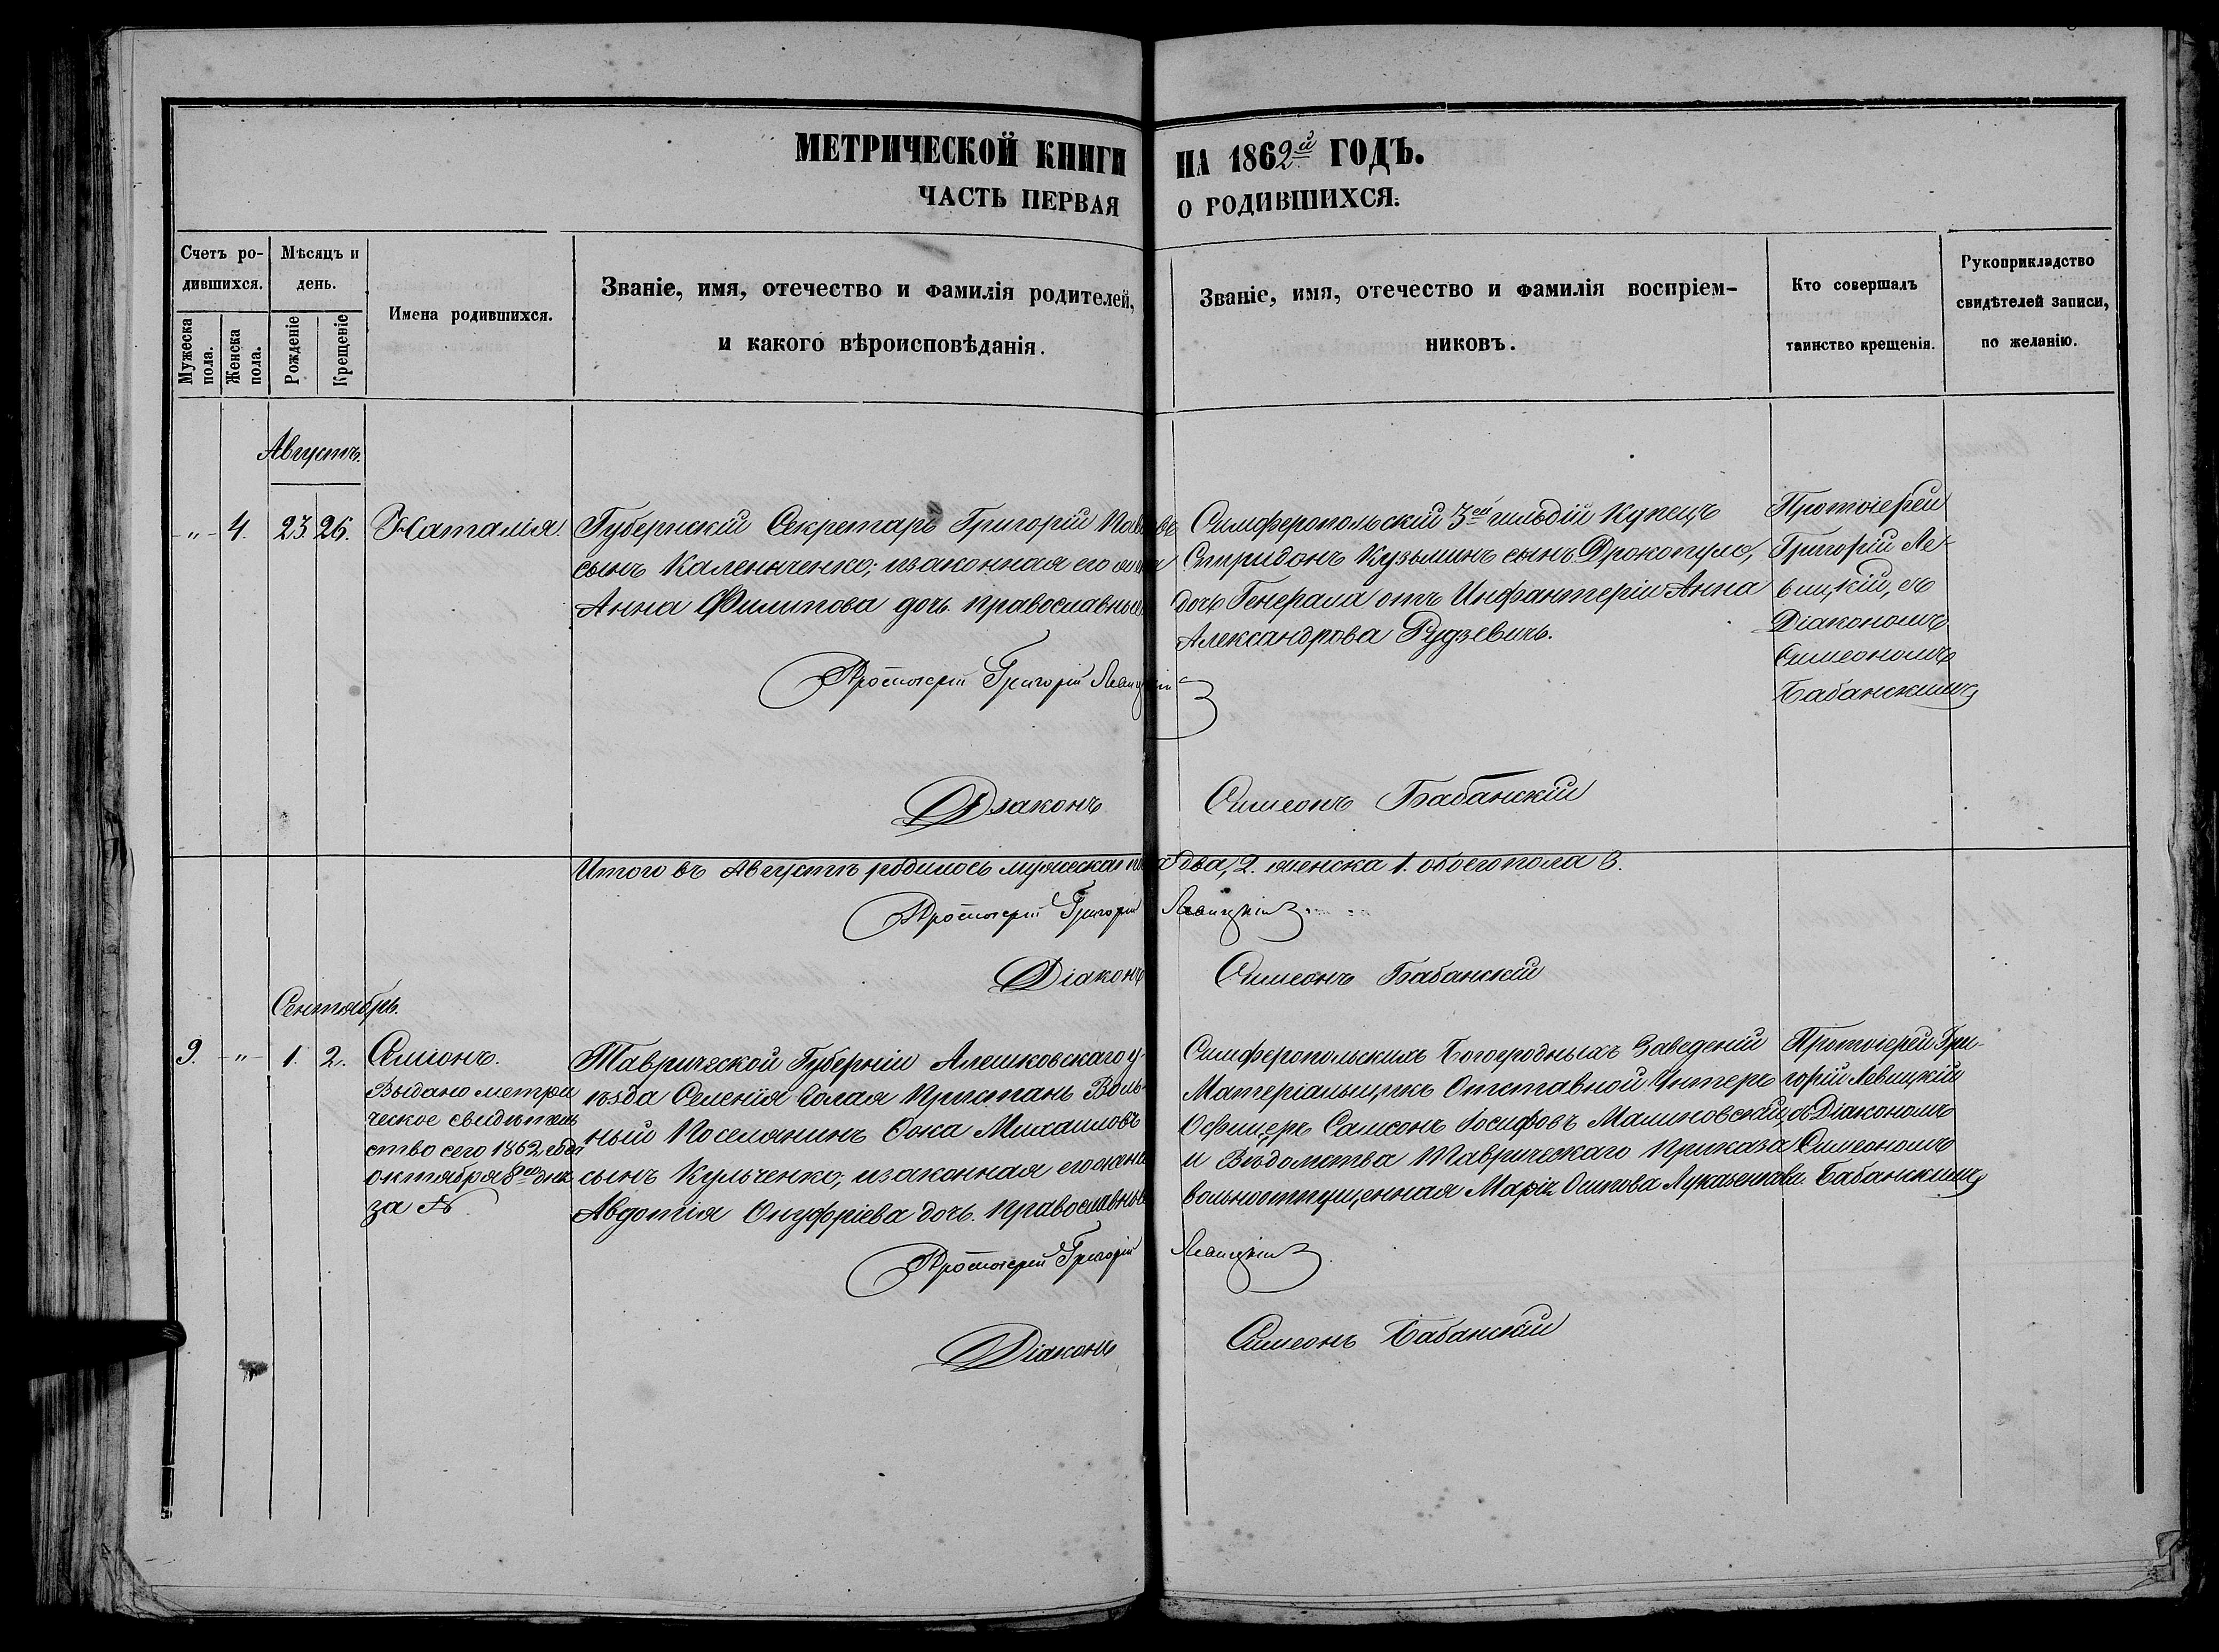 МЕТРИЧЕСКОЙ КНИГИ НА 1862й ГОДЪ.
ЧАСТЬ ПЕРВАЯ О РОДИВШИХСЯ.
Счетъ ро-
дившихся.
Мужеска пола.
Женска пола.
Мѣсяцъ и
день.
Рожденіе
Крещеніе
Имена родившихся.
Званіе, имя, отечество и фамилія родителей,
и какого вѣроисповѣданія.
Званіе, имя, отечество и фамилія воспріем-
никовъ.
Кто совершалъ
таинство крещенія.
Рукоприкладство
свидѣтелей записи,
по желанію.
Августъ.
-„- 4. 23. 26. Наталія.
Губернскій Секретарь Григорій
сынъ Каленченко; изаконная его
Анна Филипова дочь. православные
Симферопольскій 3ей гильдіи Купецъ
Спиридонъ Кузьминъ сынъ
дочь Генерала отъ Инфантеріи Анна
Александрова Рудзевичъ.
Протоіерей
Григорій Ле-
вицкій, съ
Діакономъ
Симеономъ
Бабанскимъ
Протоіерей Григорій Левицкій
Діаконъ Симеонъ Бабанскій
Итого въ Августѣ родилось мужеска пола два, 2. женска 1. обоего пола 3.
Протоіерей Григорій Левицкій
Діаконъ Симеонъ Бабанскій
Сентябрь.
9. -„- 1. 2. Симеонъ.
Выдано метри
ческое свидѣтель
ство сего 1862 года
октября 8го дня
за №.
Таврической Губерніи Алешковскаго у-
ѣзда Селенія Голая Пристань Воль-
ный Поселянинъ Ѳока Михаиловъ
сынъ Кульченко; изаконная его жена
Авдотія Онуфріева дочь. православные
Симферопольскихъ Богоугодныхъ Заведеній
Матеріальщикъ Отставной Унтеръ
Офицеръ Самсонъ Іосифовъ Малиновскій,
и Вѣдомства Таврическаго Приказа
вольноотпущенная Марія Осипова
Протоіерей Гри-
горій Левицкій
съ Діакономъ
Симеономъ
Бабанскимъ
Протоіерей Григорій Левицкій
Діаконъ Симеонъ Бабанскій